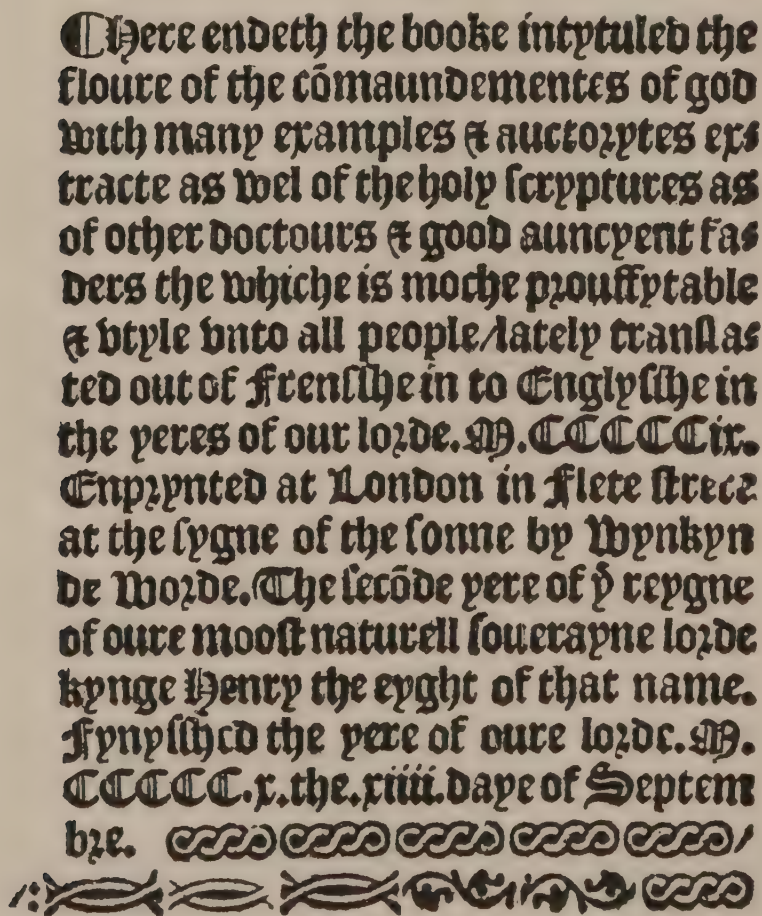 Here endeth the booke intytuled the
floure of the cōmaundementes of god
with many examples & auctorytes ex-
tracte as wel of the holy scryptures as
of other doctours & good auncyent fa-
ders the whiche is moche prouffytable
& vtyle vnto all people/lately transla-
ted out of Frensshe in to Englysshe in
the yeres of our lorde. M. CCCCC ix.
Enprynted at London in Flete strete
at the sygne of the sonne by Wynkyn
de Worde. The secōde yere of yͤ reygne
of oure moost naturell souerayne lorde
kynge Henry the eyght of that name.
Fynysshed the yere of oure lorde. M.
CCCCC.x.the.xiiii.daye of Septem
bre.